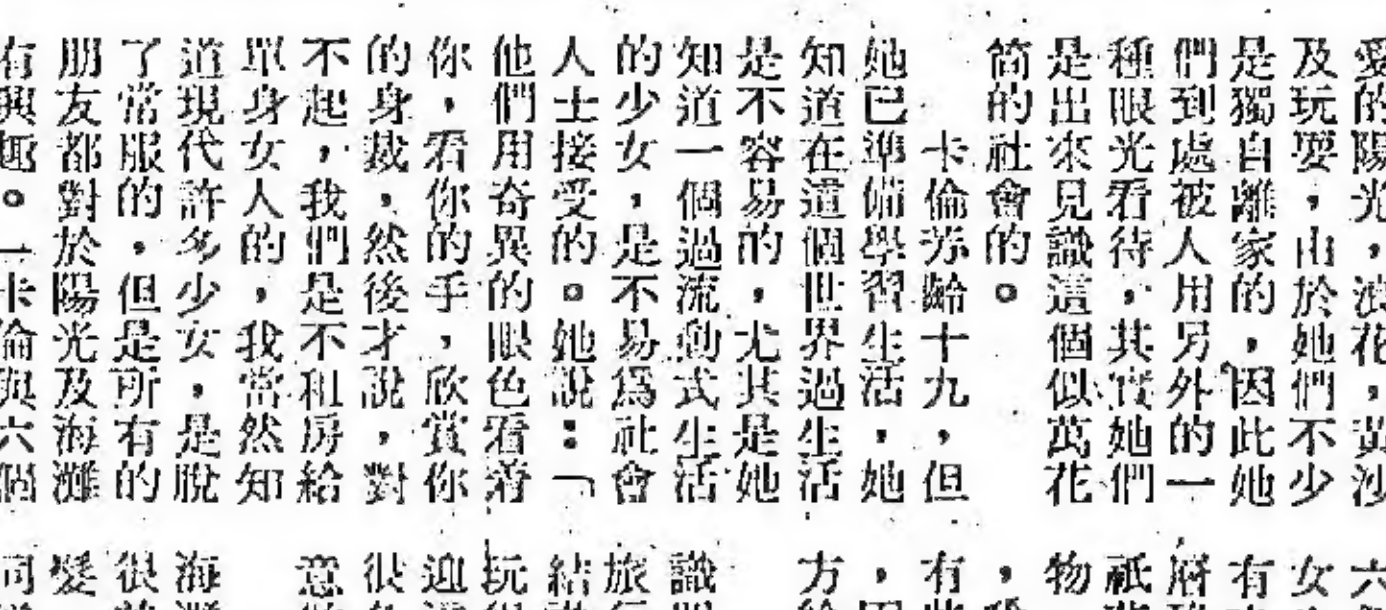 愛的陽光，浪花，黃沙
及玩耍，由於她們不少
是獨自離家的，因此她
們到處被人用另外的一
種眼光看待，其實她們
是出來見識這個似萬花
筒的社會的。
卡倫芳齡十九，但
她已準備學習生活，她
知道在這個世界過生活
是不容易的，尤其是她
知道一個過流動式生活
的少女，是不易爲社會
人士接受的。她說：「
他們用奇異的眼色看着
你，看你的手，欣賞你
的身裁，然後才說，對
不起，我們是不租房給
單身女人的，我當然知
道現代許多少女，是脫
了常服的，但是所有的
朋友都對於陽光及海灘
有興趣。」卡倫與六個
六
女
有
府
祇
物
，
有
，
方
識
旅
結
玩
迎
很
意
海
很
髮
同